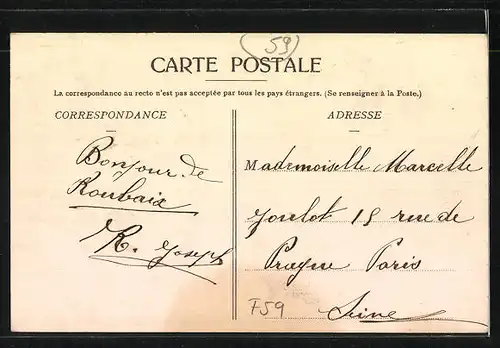 59
CARTE POSTALE
La correspondance au recto n'est pas acceptée par tous les pays étrangers. (Se renseigner à la Poste.)
CORRESPONDANCE
ADRESSE
Bonjour de
Roubaix
R. Joseph
Mademoiselle Marcelle
Joulot 15 rue de
Prague Paris
Seine
F59